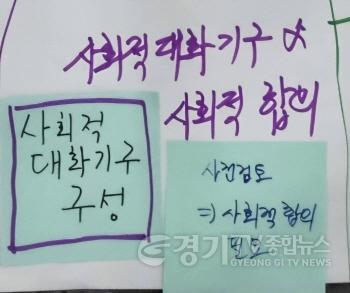 사회적대화기구 &
사회적 합의
사회적
대화기구
구성
사전검토
⇒ 사회적 합의
필요
경기종합뉴스
GYEONG GI TV NEWS